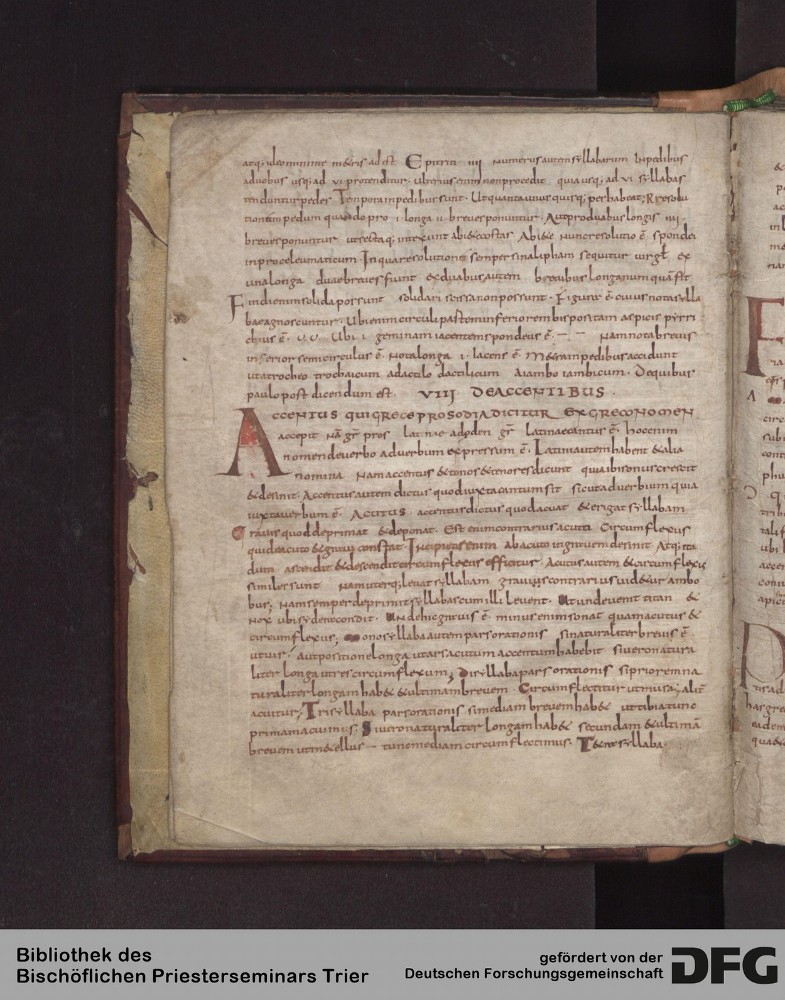 atq; ideo minime metris adest Epitriti iiii Numerus autem syllabarum in pedibus
aduobus usq; ad vi protenditur. Ulterius enim non procedit quia usq; ad vi syllabas
tenduntur pedes Tempora in pedibus sunt. Ut quantauis quisq; pes habeat; Resolu
tiontem pedum quando pro i longa ii breues ponuntur. Aut pro duabus longis iiii
breues ponuntur ut sectaq; intexunt abiete costas Abiete nunc resolutio ē spondei
in proceleumaticum. In qua resolutione semper sinalipham sequitur uirgł ex
una longa duae breues fiunt ex duabus autem breuibus longa numquā fit
Findi enim solida possunt solidari scissa non possunt. Figura ē cuius nota sylla
bae agnoscuntur. Ubi enim circuli pars tem inferiorem bis positam aspicis pyrri
chius ē. ∪∪ Ubi i geminam iacentem spondeus ē. – – Nam nota breuis
inferior semicirculus ē. Nota longa i iacens ē. Metra in pedibus accidunt
ut a trocheo trochaicum a dactilo dactilicum a iambo iambicum. De quibus
paulo post dicendum est. VIII DE ACCENTIBUS.
ACCENTUS QUI GRECE PROSODIA DICITUR EX GRECO NOMEN
accepit Nā gr̄ pros latine ad oden gr̄ latinae cantus ē. hoc enim
nomen de uerbo ad uerbum expressum ē. Latini autem habent et alia
nomina Nam accentus et tonos et tenores dicunt quia ibi sonus crescit
et desinit. Accentus autem dictus quod iuxta cantum sit sicut aduerbium quia
iuxta uerbum ē. Acutus accentus dictus quod acuat et erigat syllabam
Grauis quod deprimat et deponat. Est enim contrarius acuto Circumflexus
quia de acuto et graui constat. Incipiens enim ab acuto in grauem desinit Atq; ita
dum ascendit et descendit circumflexus efficitur. Acutus autem et circumflexus
similes sunt Nam uterq; leuat syllabam grauis contrarius uidetur ambo
bus; Nam semper deprimit syllabas cum illi leuent. Ut unde uenit titan et
nox ubi sydera condit. Unde hic grauis ē. minus enim sonat quam acutus et
circumflexus; Monosyllaba autem pars orationis si naturaliter breuis ē
ut uir. aut positione longa ut ars acutum accentum habebit si uero natura
liter longa ut res circumflexum; Disyllaba pars orationis si priorem na
turaliter longam habet et ultimam brevem. Circumflectitur ut musa; alit̄
acuitur; Trisyllaba pars orationis si mediam breuem habet ut tibia tunc
primam acuimus; Si uero naturaliter longam habet secundam et ultimā
breuem ut metellus – tunc mediam circumflectimus. Tetrasyllaba
Bibliothek des
Bischöflichen Priesterseminars Trier
gefördert von der
Deutschen Forschungsgemeinschaft
DFG